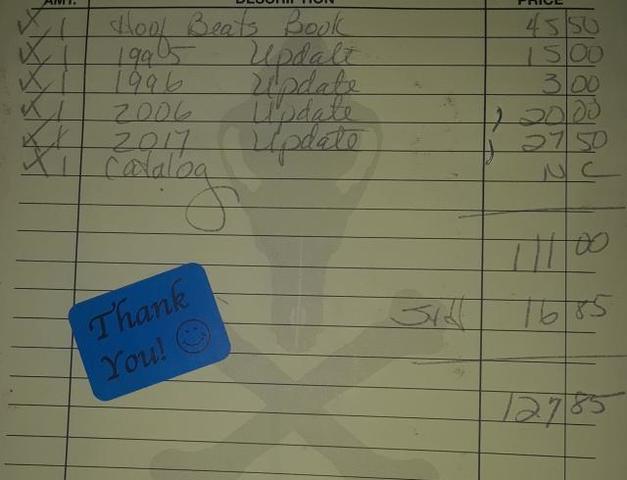 AMT. DESCRIPTION PRICE
X 1 Hoof Beats Book 45 50
X 1 1995 Update 15 00
X 1 1996 Update 3 00
X 1 2006 Update 20 00
X 1 2017 Update 27 50
X 1 Catalog N C
111 00
16 85
127 85
Thank
You!